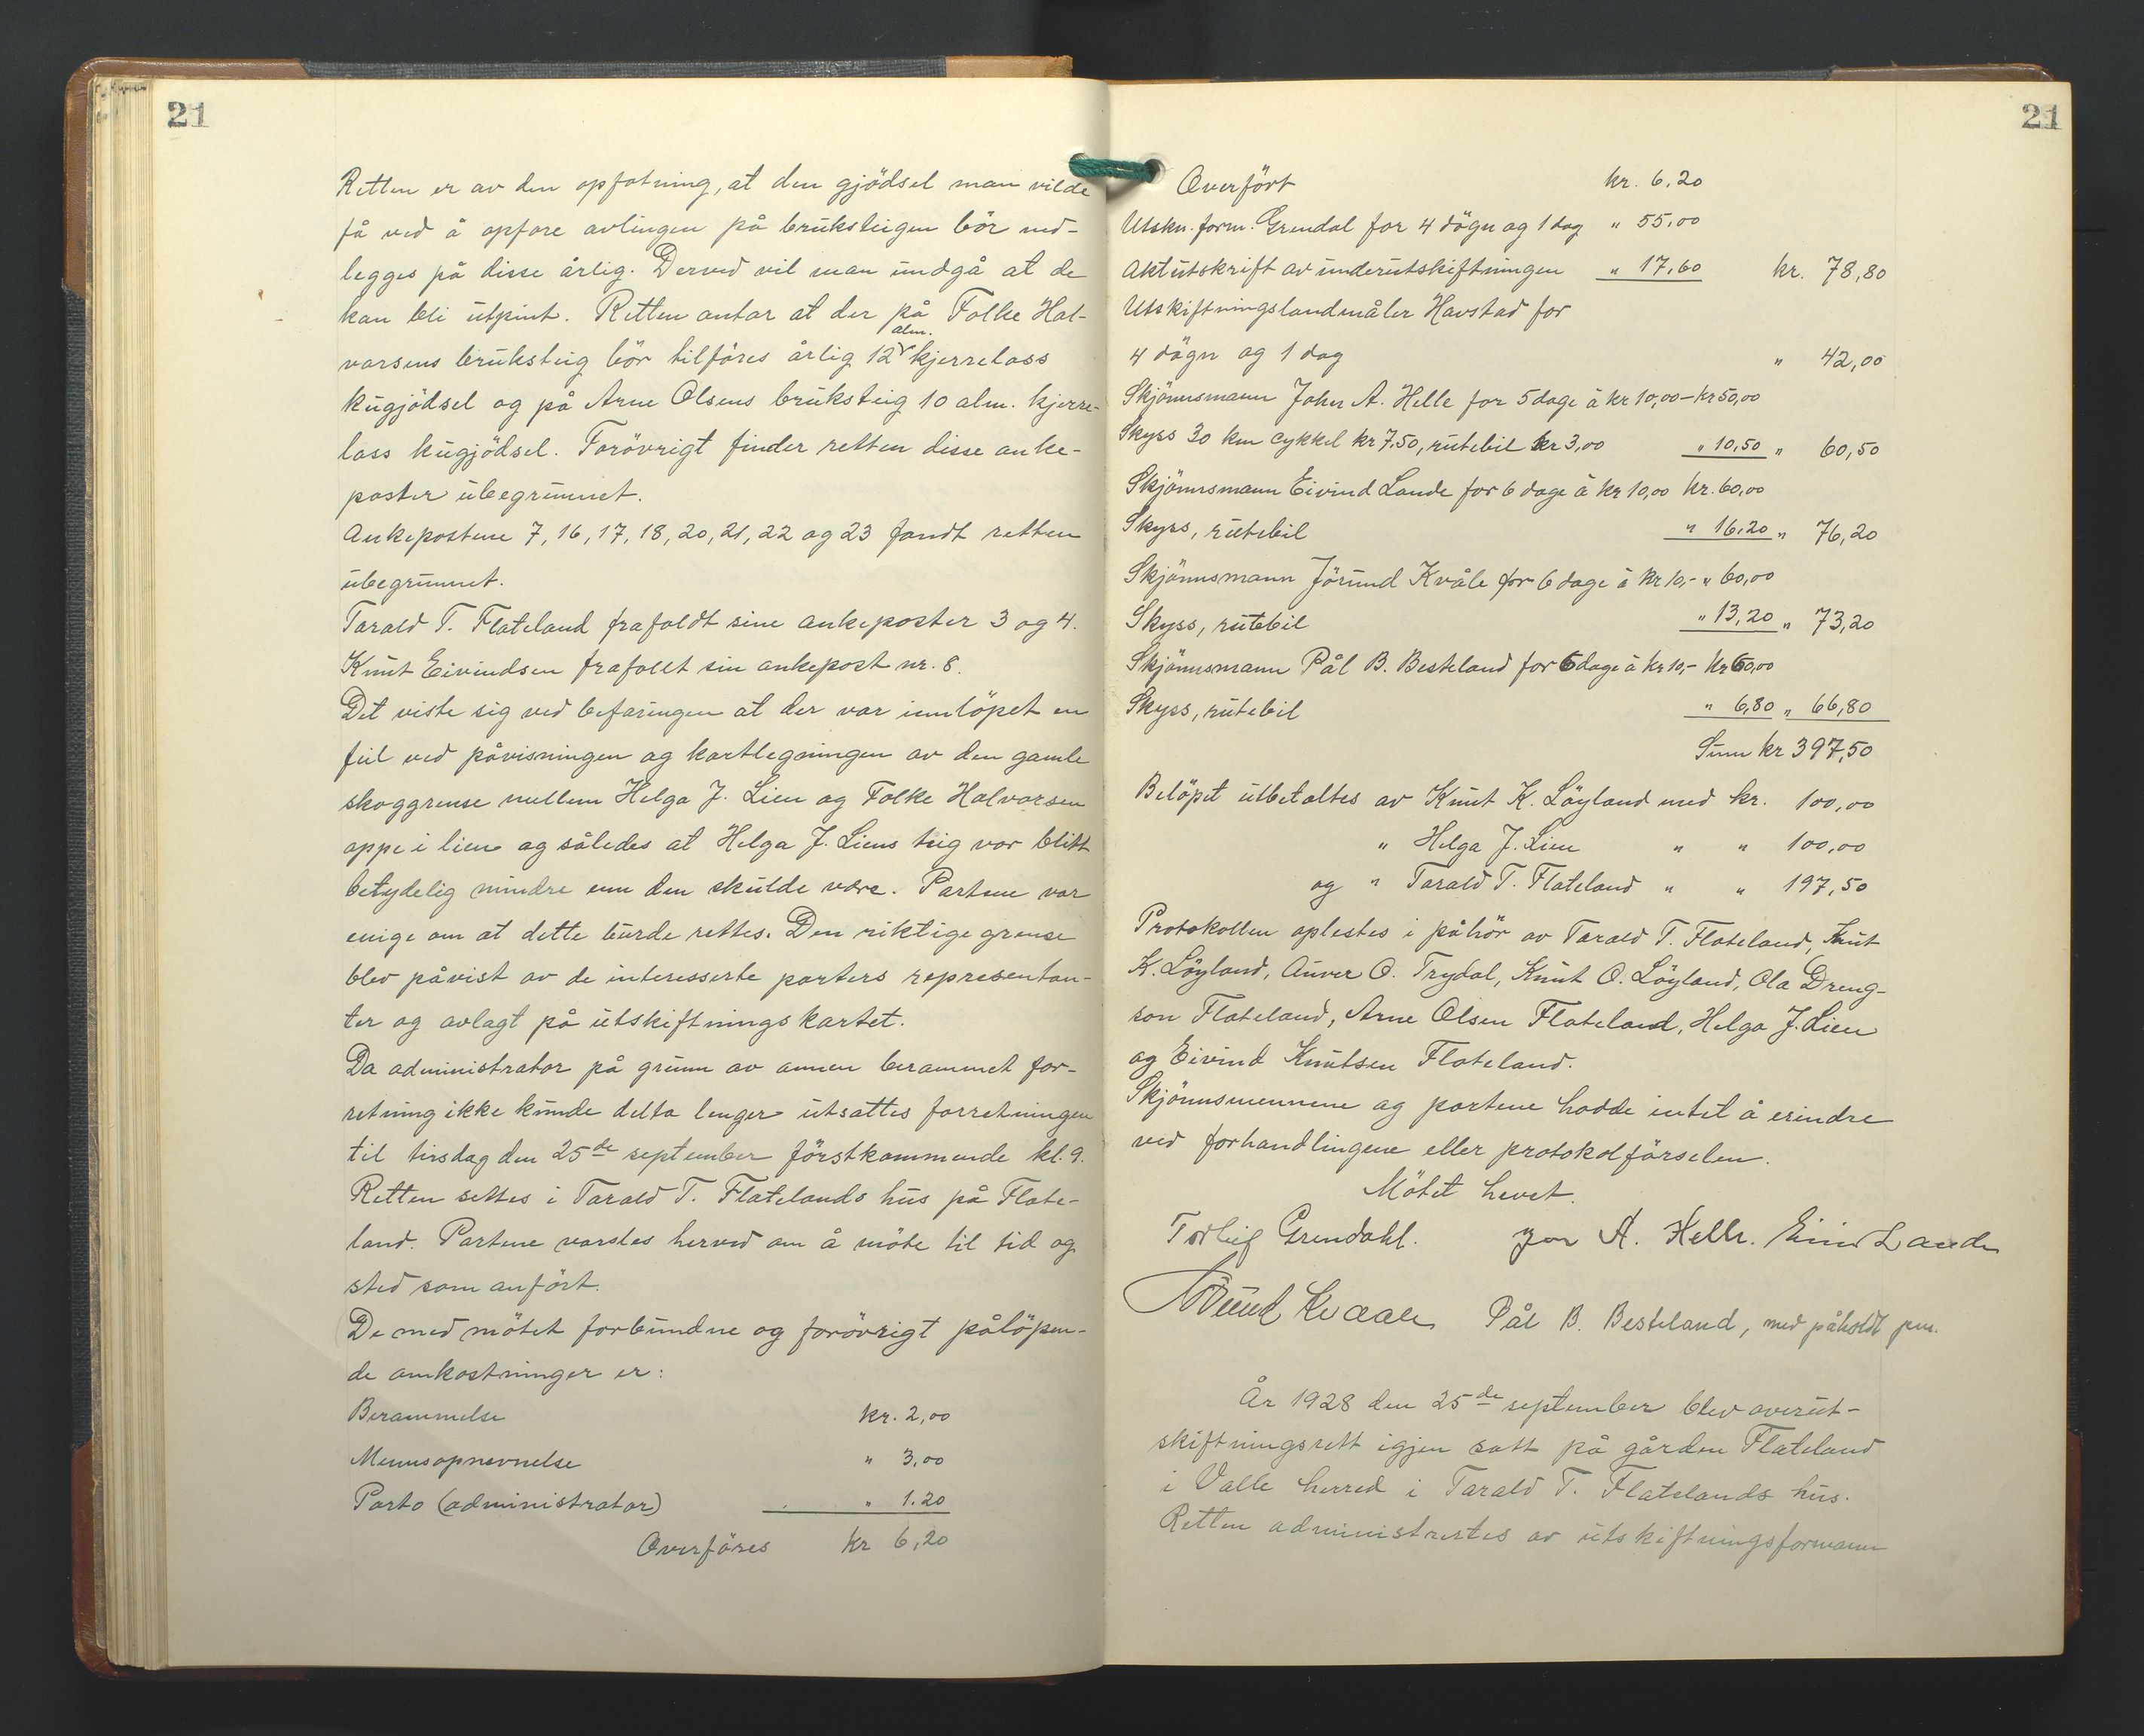 21
Retten er av den opfatning, at den gjödsel man vilde
få ved å opfore avlingen på bruksteigen bör ned-
legges på disse årlig. Derved vil man undgå at de
kan bli utpint. Retten antar at der på Folke Hal-
varsens bruksteig bör tilföres årlig 12 alm. kjerrelass
kugjödsel og på Arne Olsens bruksteig 10 alm. kjerre-
lass kugjödsel. Forövrigt finder retten disse anke-
poster ubegrunnet.
Ankepostene 7, 16, 17, 18, 20, 21, 22 og 23 fandt retten
ubegrunnet.
Tarald T. Flateland frafaldt sine ankeposter 3 og 4.
Knut Eivindsen frafallt sin ankepost nr. 8.
Det viste sig ved befaringen at der var innlöpet en
feil ved påvisningen og kartlegningen av den gamle
skoggrense mellem Helga J. Lien og Folke Halvorsen
oppe i lien og således at Helga J. Liens teig var blitt
betydelig mindre enn den skulde være. Partene var
enige om at dette burde rettes. Den riktige grense
blev påvist av de interesserte parters representan-
ter og avlagt på utskiftningskartet.
Da administrator på grunn av annen berammet for-
retning ikke kunde delta lenger utsattes forretningen
til tirsdag den 25de september förstkommende kl. 9.
Retten settes i Tarald T. Flatelands hus på Flate-
land. Partene varsles herved om å möte til tid og
sted som anfört.
De med mötet forbundne og forövrigt pålöpen-
de omkostninger er:
Berammelse kr. 2,00
Mennsopnevnelse " 3,00
Porto (administrator) " 1.20
Overföres kr 6,20
21
Overfört kr. 6.20
Utskn. form. Grendal for 4 dögn og 1 dag " 55,00
Aktutskrift av underutskiftningen " 17,60 kr. 78,80
Utskiftningslandmåler Havstad for
4 dögn og 1 dag " 42,00
Skjönnsmann John A. Helle for 5 dage à kr 10,00 - kr 50,00
Skyss 30 km cykkel kr 7.50, rutebil kr 3,00 " 10,50 " 60,50
Skjönnsmann Eivind Lande for 6 dage à kr 10,00 kr. 60,00
Skyss, rutebil " 16,20 " 76,20
Skjönnsmann Jörund Kvåle for 6 dage à kr 10,- " 60,00
Skyss, rutebil " 13,20 " 73,20
Skjönnsmann Pål B. Besteland for 6 dage à kr 10,- kr 60,00
Skyss, rutebil " 6,80 " 66,80
Sum kr 397,50
Belöpet utbetaltes av Knut K. Löyland med kr. 100,00
" Helga J. Lien " " 100,00
og " Tarald T. Flateland " " 197,50
Protokollen oplestes i påhör av Tarald T. Flateland, Knut
K. Löyland, Auver O. Trydal, Knut O. Löyland, Ola Dreng-
son Flateland, Arne Olsen Flateland, Helga J. Lien
og Eivind Knutsen Flateland.
Skjönnsmennene og partene hadde intet å erindre
ved forhandlingene eller protokolförselen.
Mötet hevet.
Torleif Grendahl. Jon A. Helle. Eivind Lande
Jörund Kvaale Pål B. Besteland, med påholdt pen.
År 1928 den 25de september blev overut-
skiftningsrett igjen satt på gården Flateland
i Valle herred i Tarald T. Flatelands hus.
Retten administrertes av utskiftningsformann